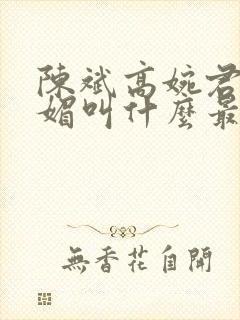 陳斌高婉君
媚叫什麼最
無香花自開